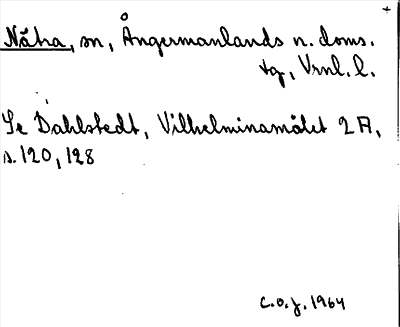 Nätra, sn, Ångermanlands n. doms.
tg, Vrnl. l.
Se Dahlstedt, Vilhelminamålet 2 A,
s. 120, 128
C.O.J. 1964